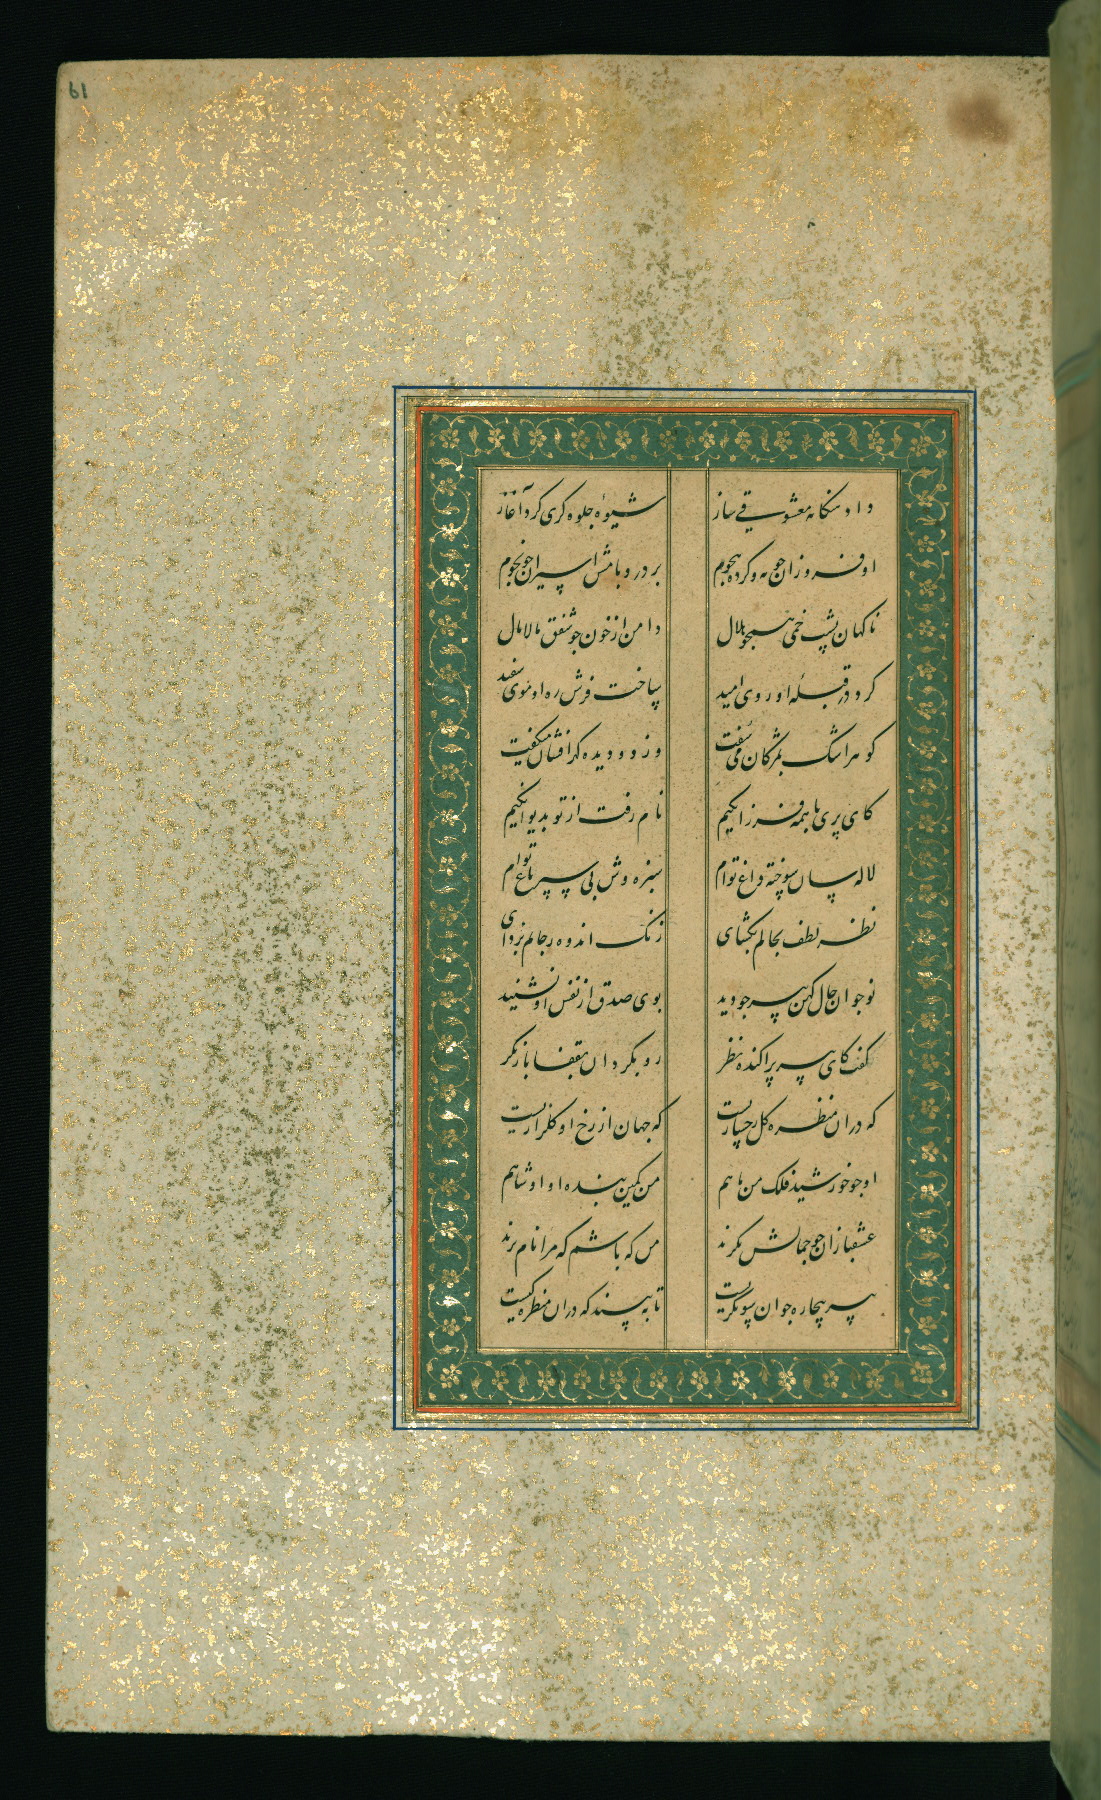 ۶۱
داد هنگامه معشوقی ساز شیوه جلوه کری کرد آغاز
او فروزان چو مه و کرده هجوم بر در و بامش اسیران چو نجوم
ناکهان پشت خمی همچو هلال دامن از خون چو شفق مالامال
کرد در قبله او روی امید ساخت فرش ره او موی سفید
کوهر اشک بمژکان می سفت وز دو دیده کهر افشان میکفت
کای پری با همه فرزانکیم نام رفت از تو بدیوانکیم
لاله سان سوخته داغ توام سبزه وش پی سپر باغ توام
نظر لطف بحالم بکشای زنک اندوه ز جانم بزدای
نوجوان حال کهن پیر چو دید بوی صدق از نفس او نشنید
کفت کای پیر پراکنده نظر رو بکردان بقفا باز نکر
که دران منظره کل رخساریست که جهان از رخ او کلزاریست
او چو خورشید فلک من ماهم من کمین بنده او او شاهم
عشقبازان چو جمالش نکرند من که باشم که مرا نام برند
پیر بیچاره جوان سو نکریست تا به بیند که دران منظره کیست